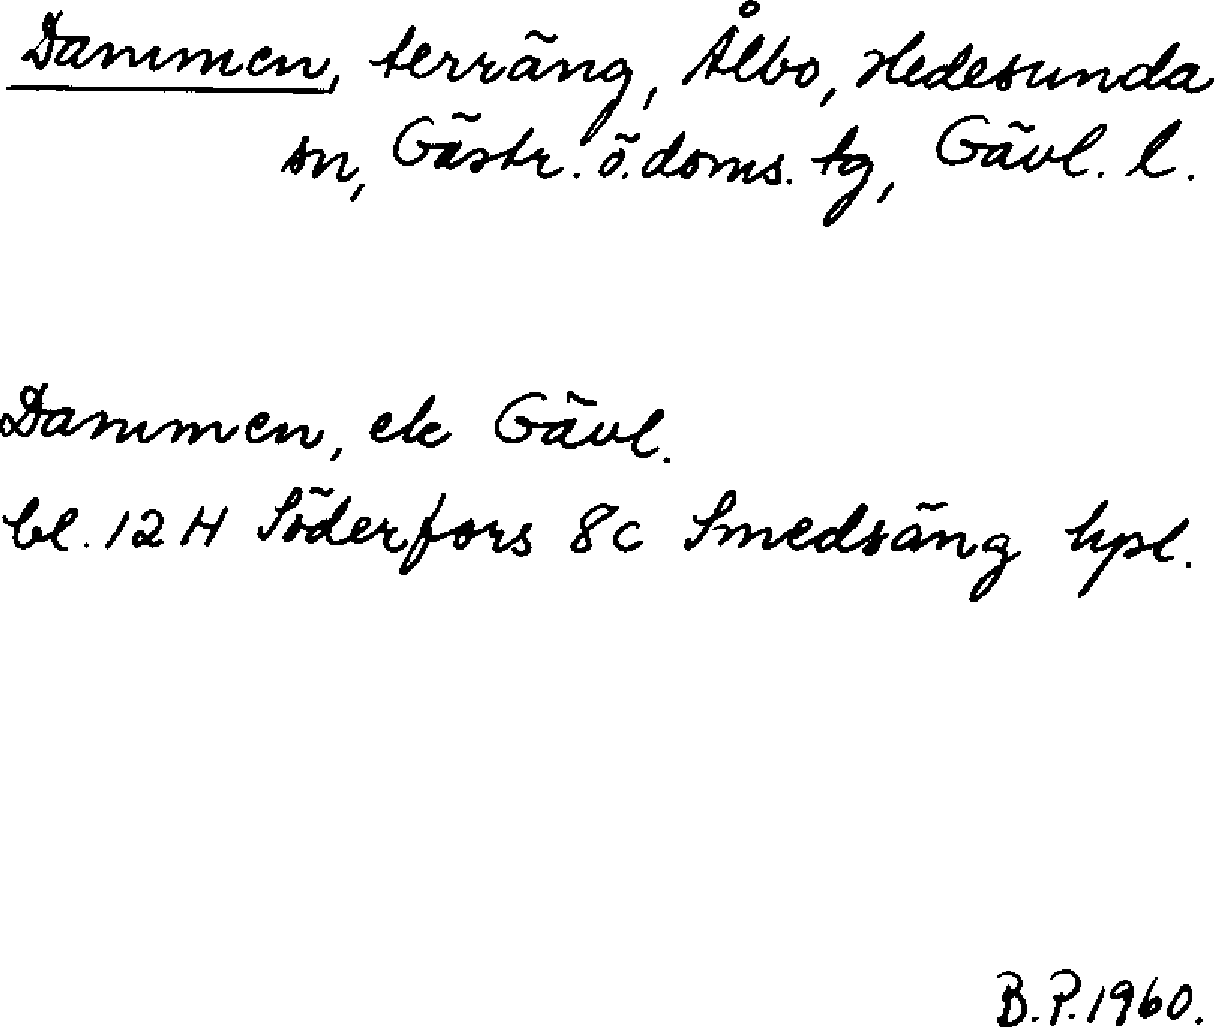 Dammen, terräng, Ålbo, Hedesunda
sn, Gästr. ö. doms. tg, Gävl. l.
Dammen, ek Gävl.
bl. 12 H Söderfors 8c Smedsäng hpl.
B.P. 1960.